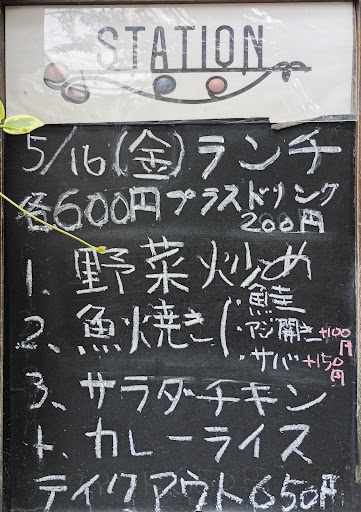 STATION
5/16(金)ランチ
各600円プラスドリンク
200円
1、野菜炒め
2、魚焼き(・鮭
・アジ開き+100円
・サバ+150円
3、サラダチキン
4、カレーライス
テイクアウト650円